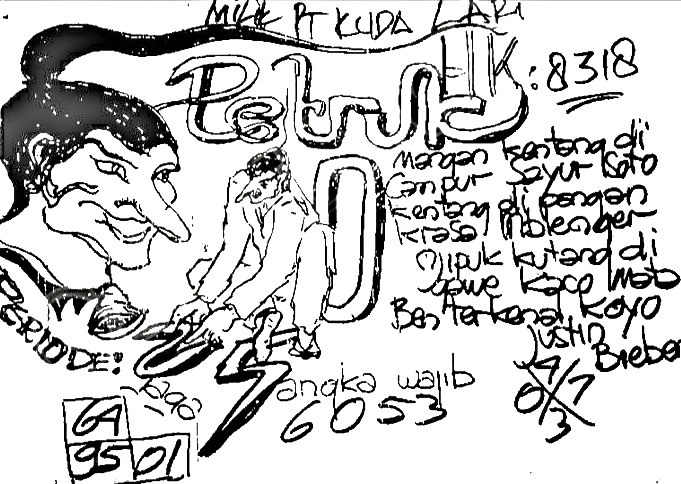 MILIK PT KUDA LARI
Petruk
HK : 8318
Mangan kentang di
Campur Sayur Soto
kentang di pangan
krasa
Njipuk kutang di
gawe kaco Mata
Ben terkenal koyo
Justin
Bieber
0
PERIODE:
Jaga
64
95 01
angka wajib
6053
4
0 7
3